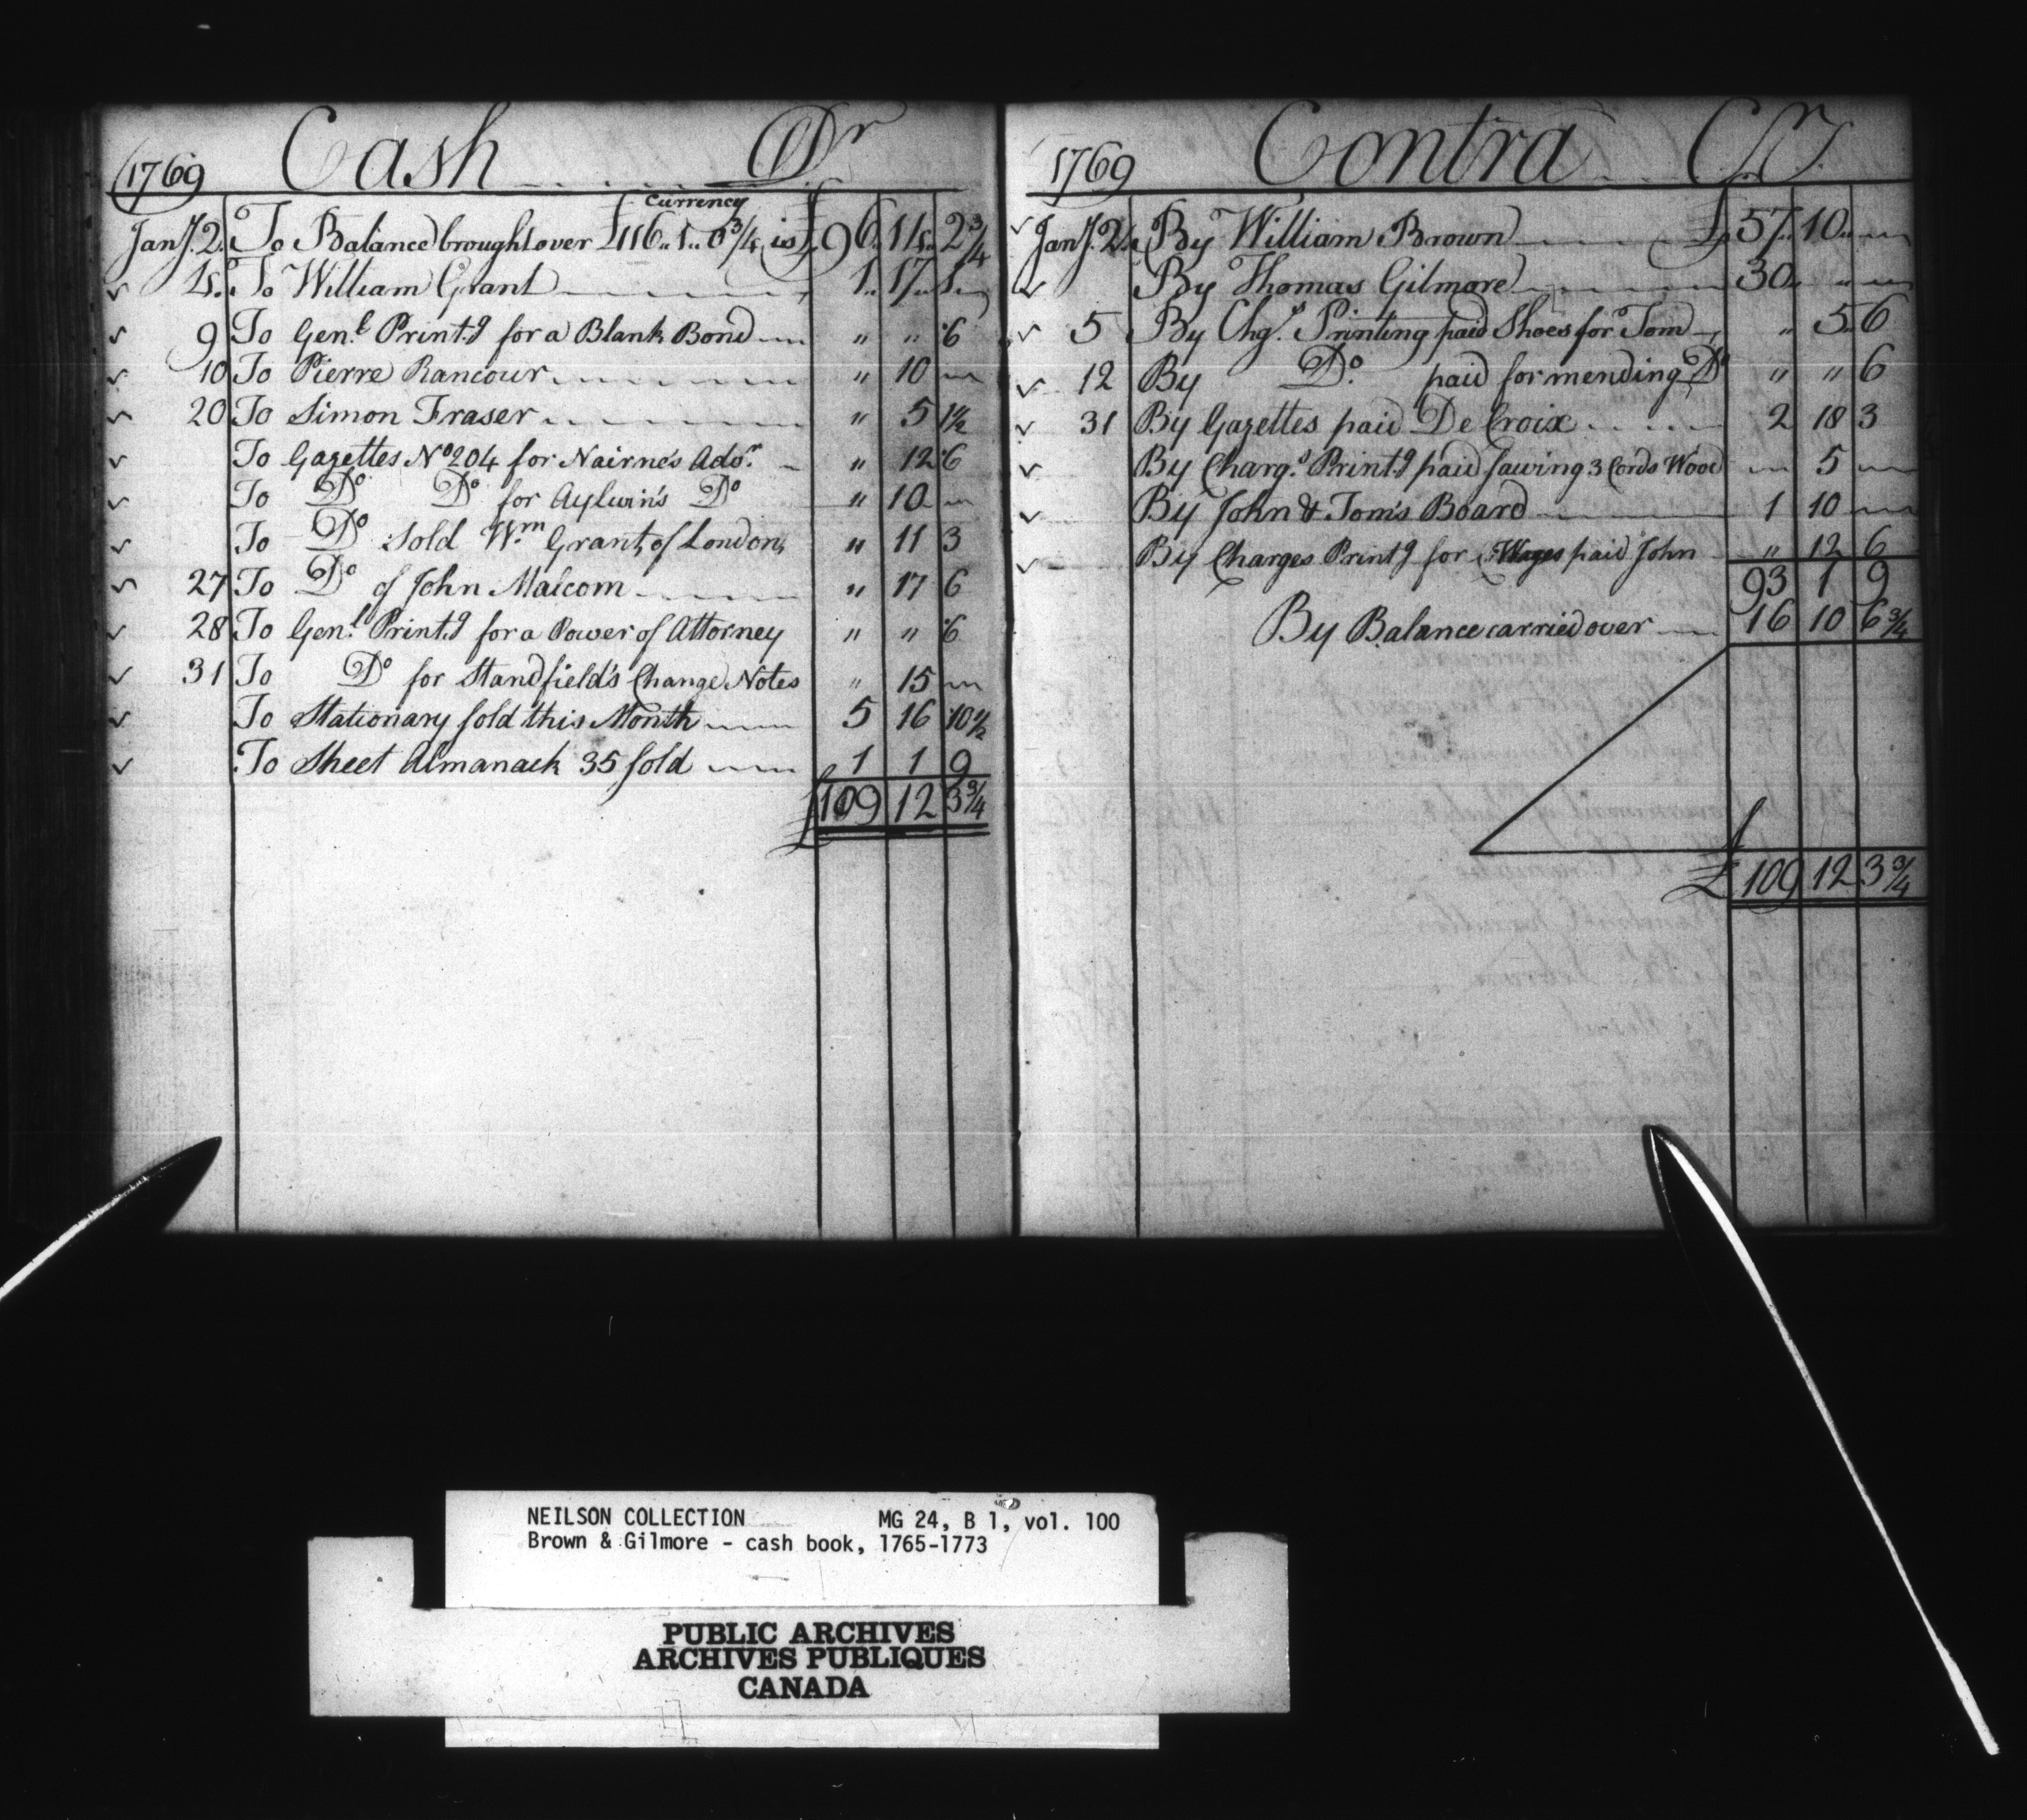 1769 Cash Dr
Currency
Jany. 2. To Balance brought over £116..1..0¾ is £ 96.. 14.. 2¾
4. To William Grant 1.. 17.. 1
9 To Genl. Printg for a Blank Bond " " 6
10 To Pierre Rancour " 10
20 To Simon Fraser " 5 1½
To Gazettes No 204 for Nairne's Adv. " 12 6
To Do Do for Aylwin's Do " 10
To Do sold Wm Grant, of London, " 11 3
27 To Do of John Malcom " 17 6
28 To Genl. Printg for a Power of Attorney " " 6
31 To Do for Standfield's Change Notes " 15
To Stationary sold this Month 5 16 10½
To Sheet Almanack 35 sold 1 1 9
£ 109 12 3¾
1769 Contra Cr.
Jany. 2. By William Brown £ 57.. 10..
By Thomas Gilmore 30.. "
5 By Chgs. Printing paid Shoes for Tom " 5.. 6
12 By Do. paid for mending Do " " 6
31 By Gazettes paid De Croix 2 18 3
By Chargs. Printg paid sawing 3 Cords Wood 5
By John & Tom's Board 1 10
By Charges Printg for Wages paid John " 12 6
93 1 9
By Balance carried over 16 10 6¾
£ 109 12 3¾
NEILSON COLLECTION MG 24, B 1, vol. 100
Brown & Gilmore - cash book, 1765-1773
PUBLIC ARCHIVES
ARCHIVES PUBLIQUES
CANADA